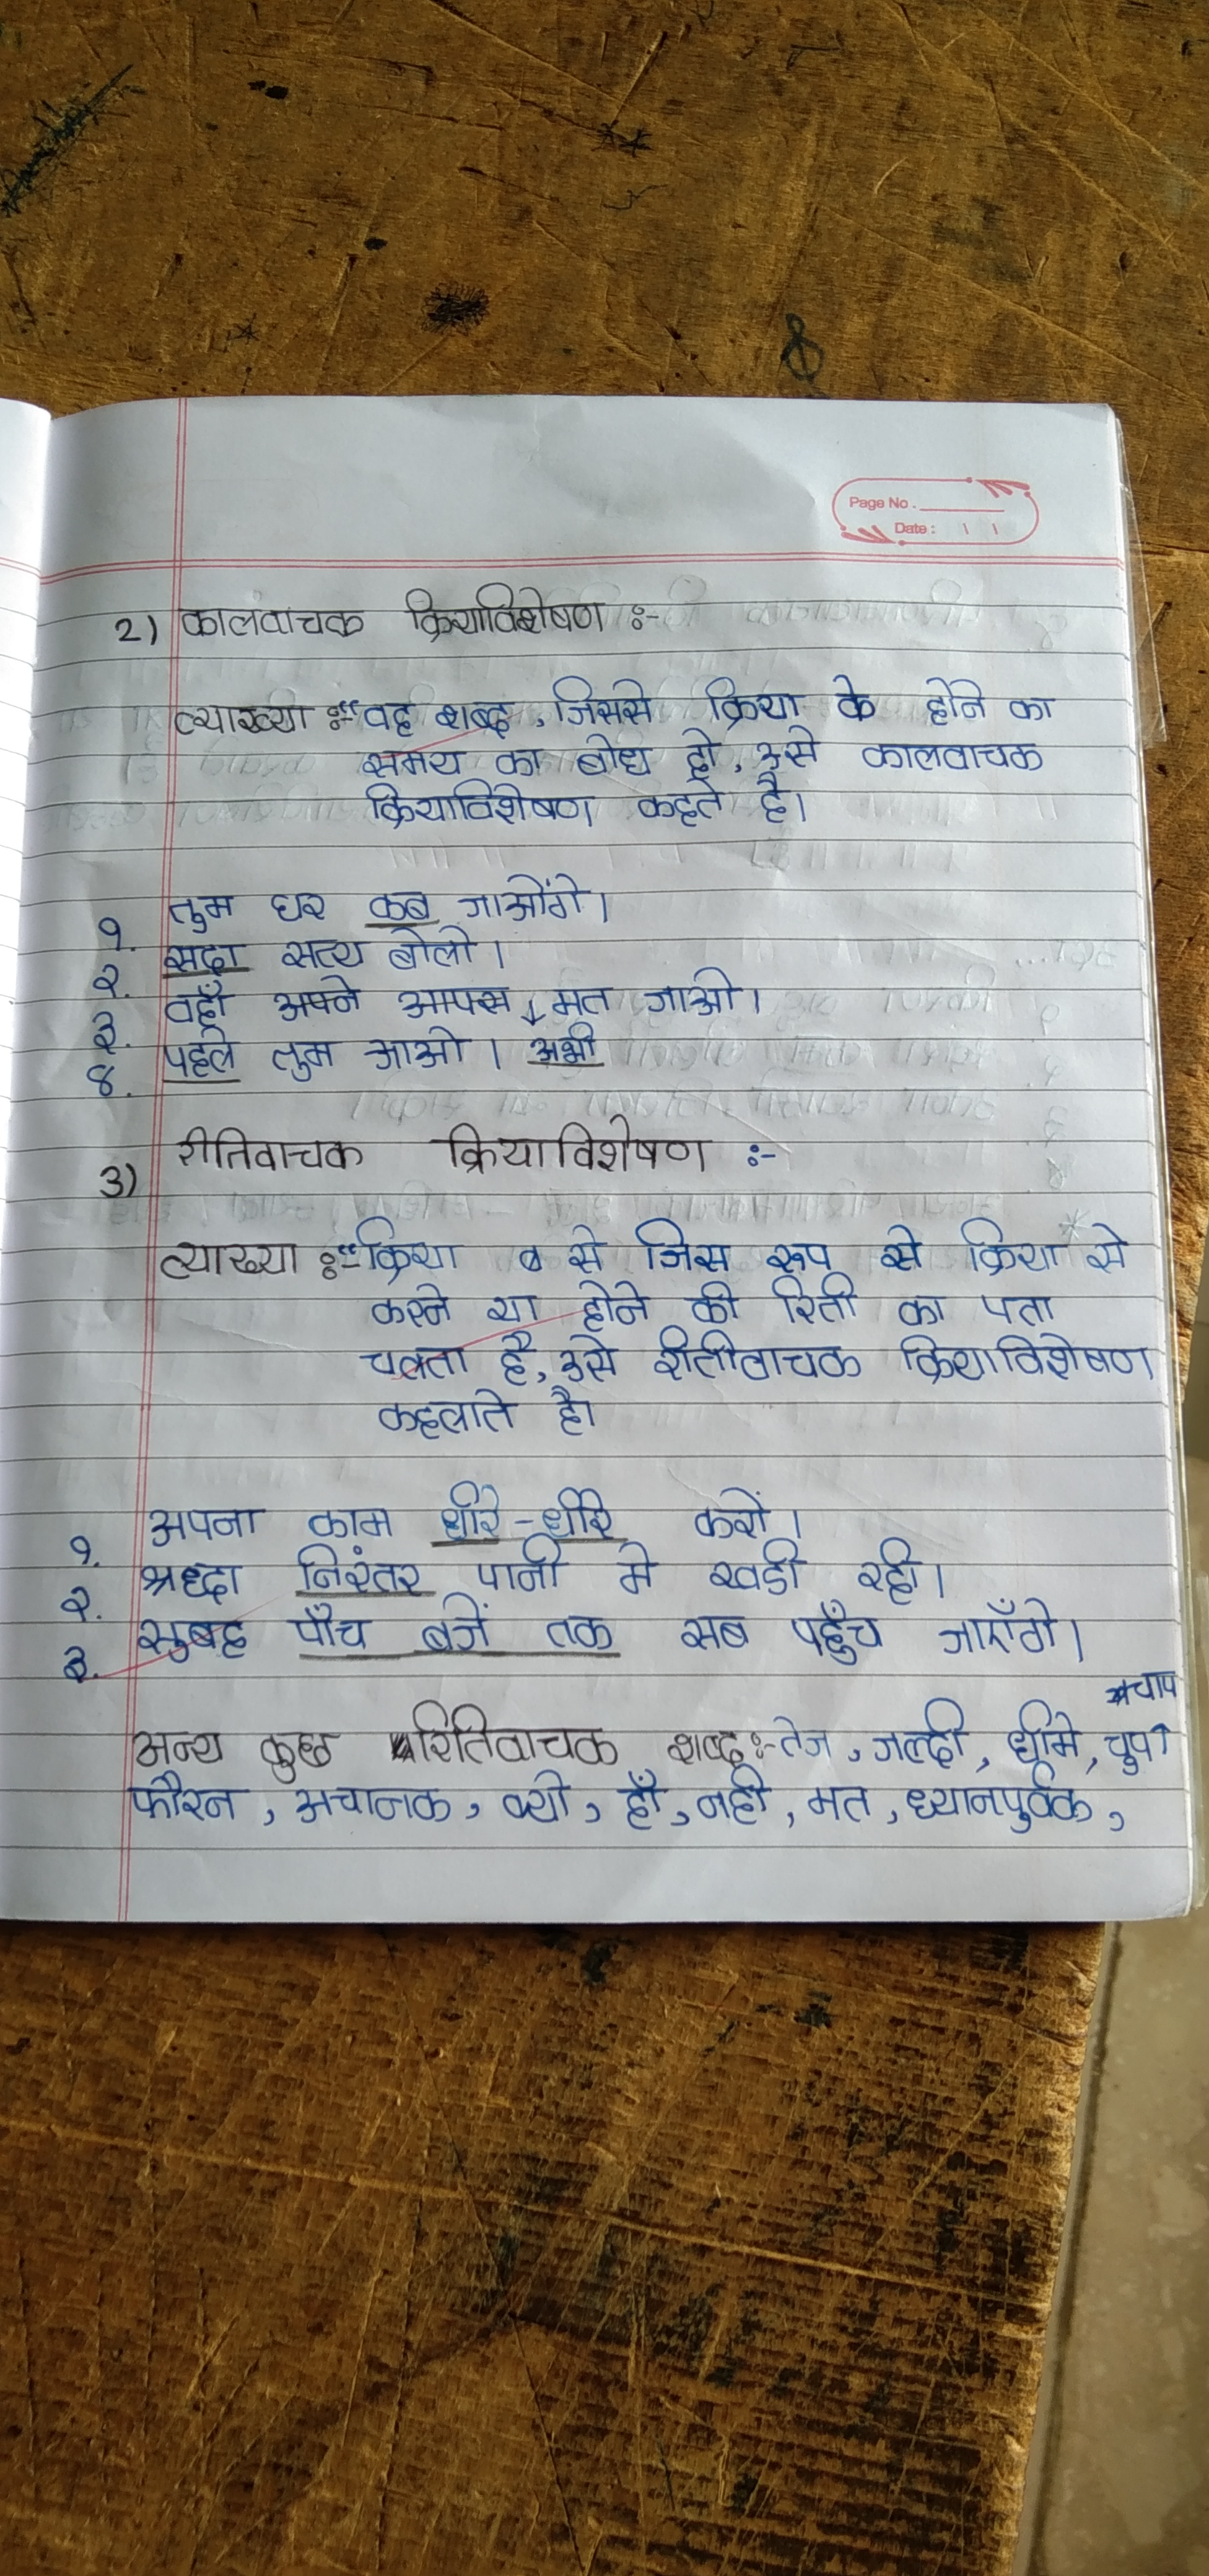 Page No.
Date :
2) कालवाचक क्रियाविशेषण :-
व्याख्या :- "वह शब्द, जिससे क्रिया के होने का
समय का बोध हो, उसे कालवाचक
क्रियाविशेषण कहते है।
१. तुम घर कब जाओंगे।
२. सदा सत्य बोलो।
३. वहाँ अपने आपस मत जाओ।
४. पहले तुम जाओ। अभी
3) रीतिवाचक क्रियाविशेषण :-
व्याख्या :- "क्रिया से जिस रूप से क्रिया से
करने या होने की रिती का पता
चलता है, उसे रीतीवाचक क्रियाविशेषण
कहलाते है।
१. अपना काम धीरे-धीरे करों।
२. श्रध्दा निरंतर पानी मे खडी रही।
३. सुबह पाँच बजें तक सब पहुँच जाएँगे।
चाप
अन्य कुछ रितिवाचक शब्द :- तेज, जल्दी, धीमे, चुप
फौरन, अचानक, क्यों, हाँ, नही, मत, ध्यानपुर्वक,